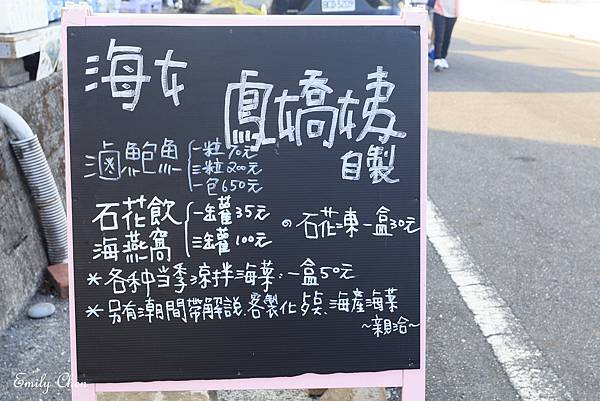 海女 鳳嬌姨
自製
滷鮑魚 一粒70元
三粒200元
一包650元
石花飲 一罐35元
海燕窩 三罐100元
の石花凍一盒30元
*各种当季涼拌海菜:一盒50元
*另有潮間帶解說.客製化
海產海菜
~親洽~
Emily Chen